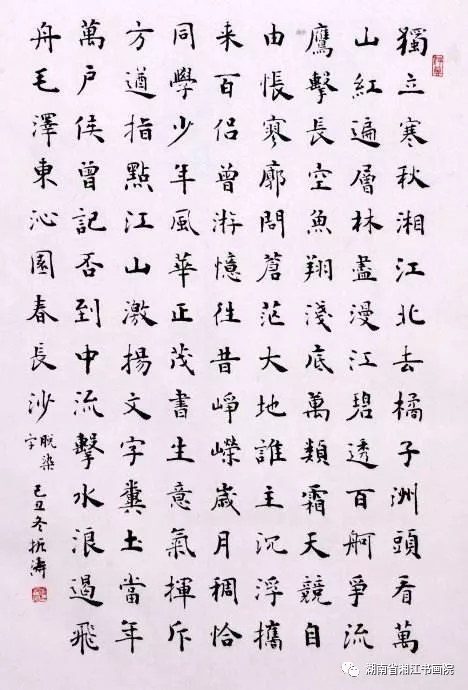 獨立寒秋湘江北去橘子洲頭看萬
山紅遍層林盡漫江碧透百舸爭流
鷹擊長空魚翔淺底萬類霜天競自
由悵寥廓問蒼茫大地誰主沉浮攜
来百侣曾游憶往昔崢嶸歲月稠恰
同學少年風華正茂書生意氣揮斥
方遒指點江山激揚文字糞土當年
萬户侯曾記否到中流擊水浪遏飛
舟毛澤東沁園春長沙
脱染
字
己丑冬振濤
湖南省湘江书画院